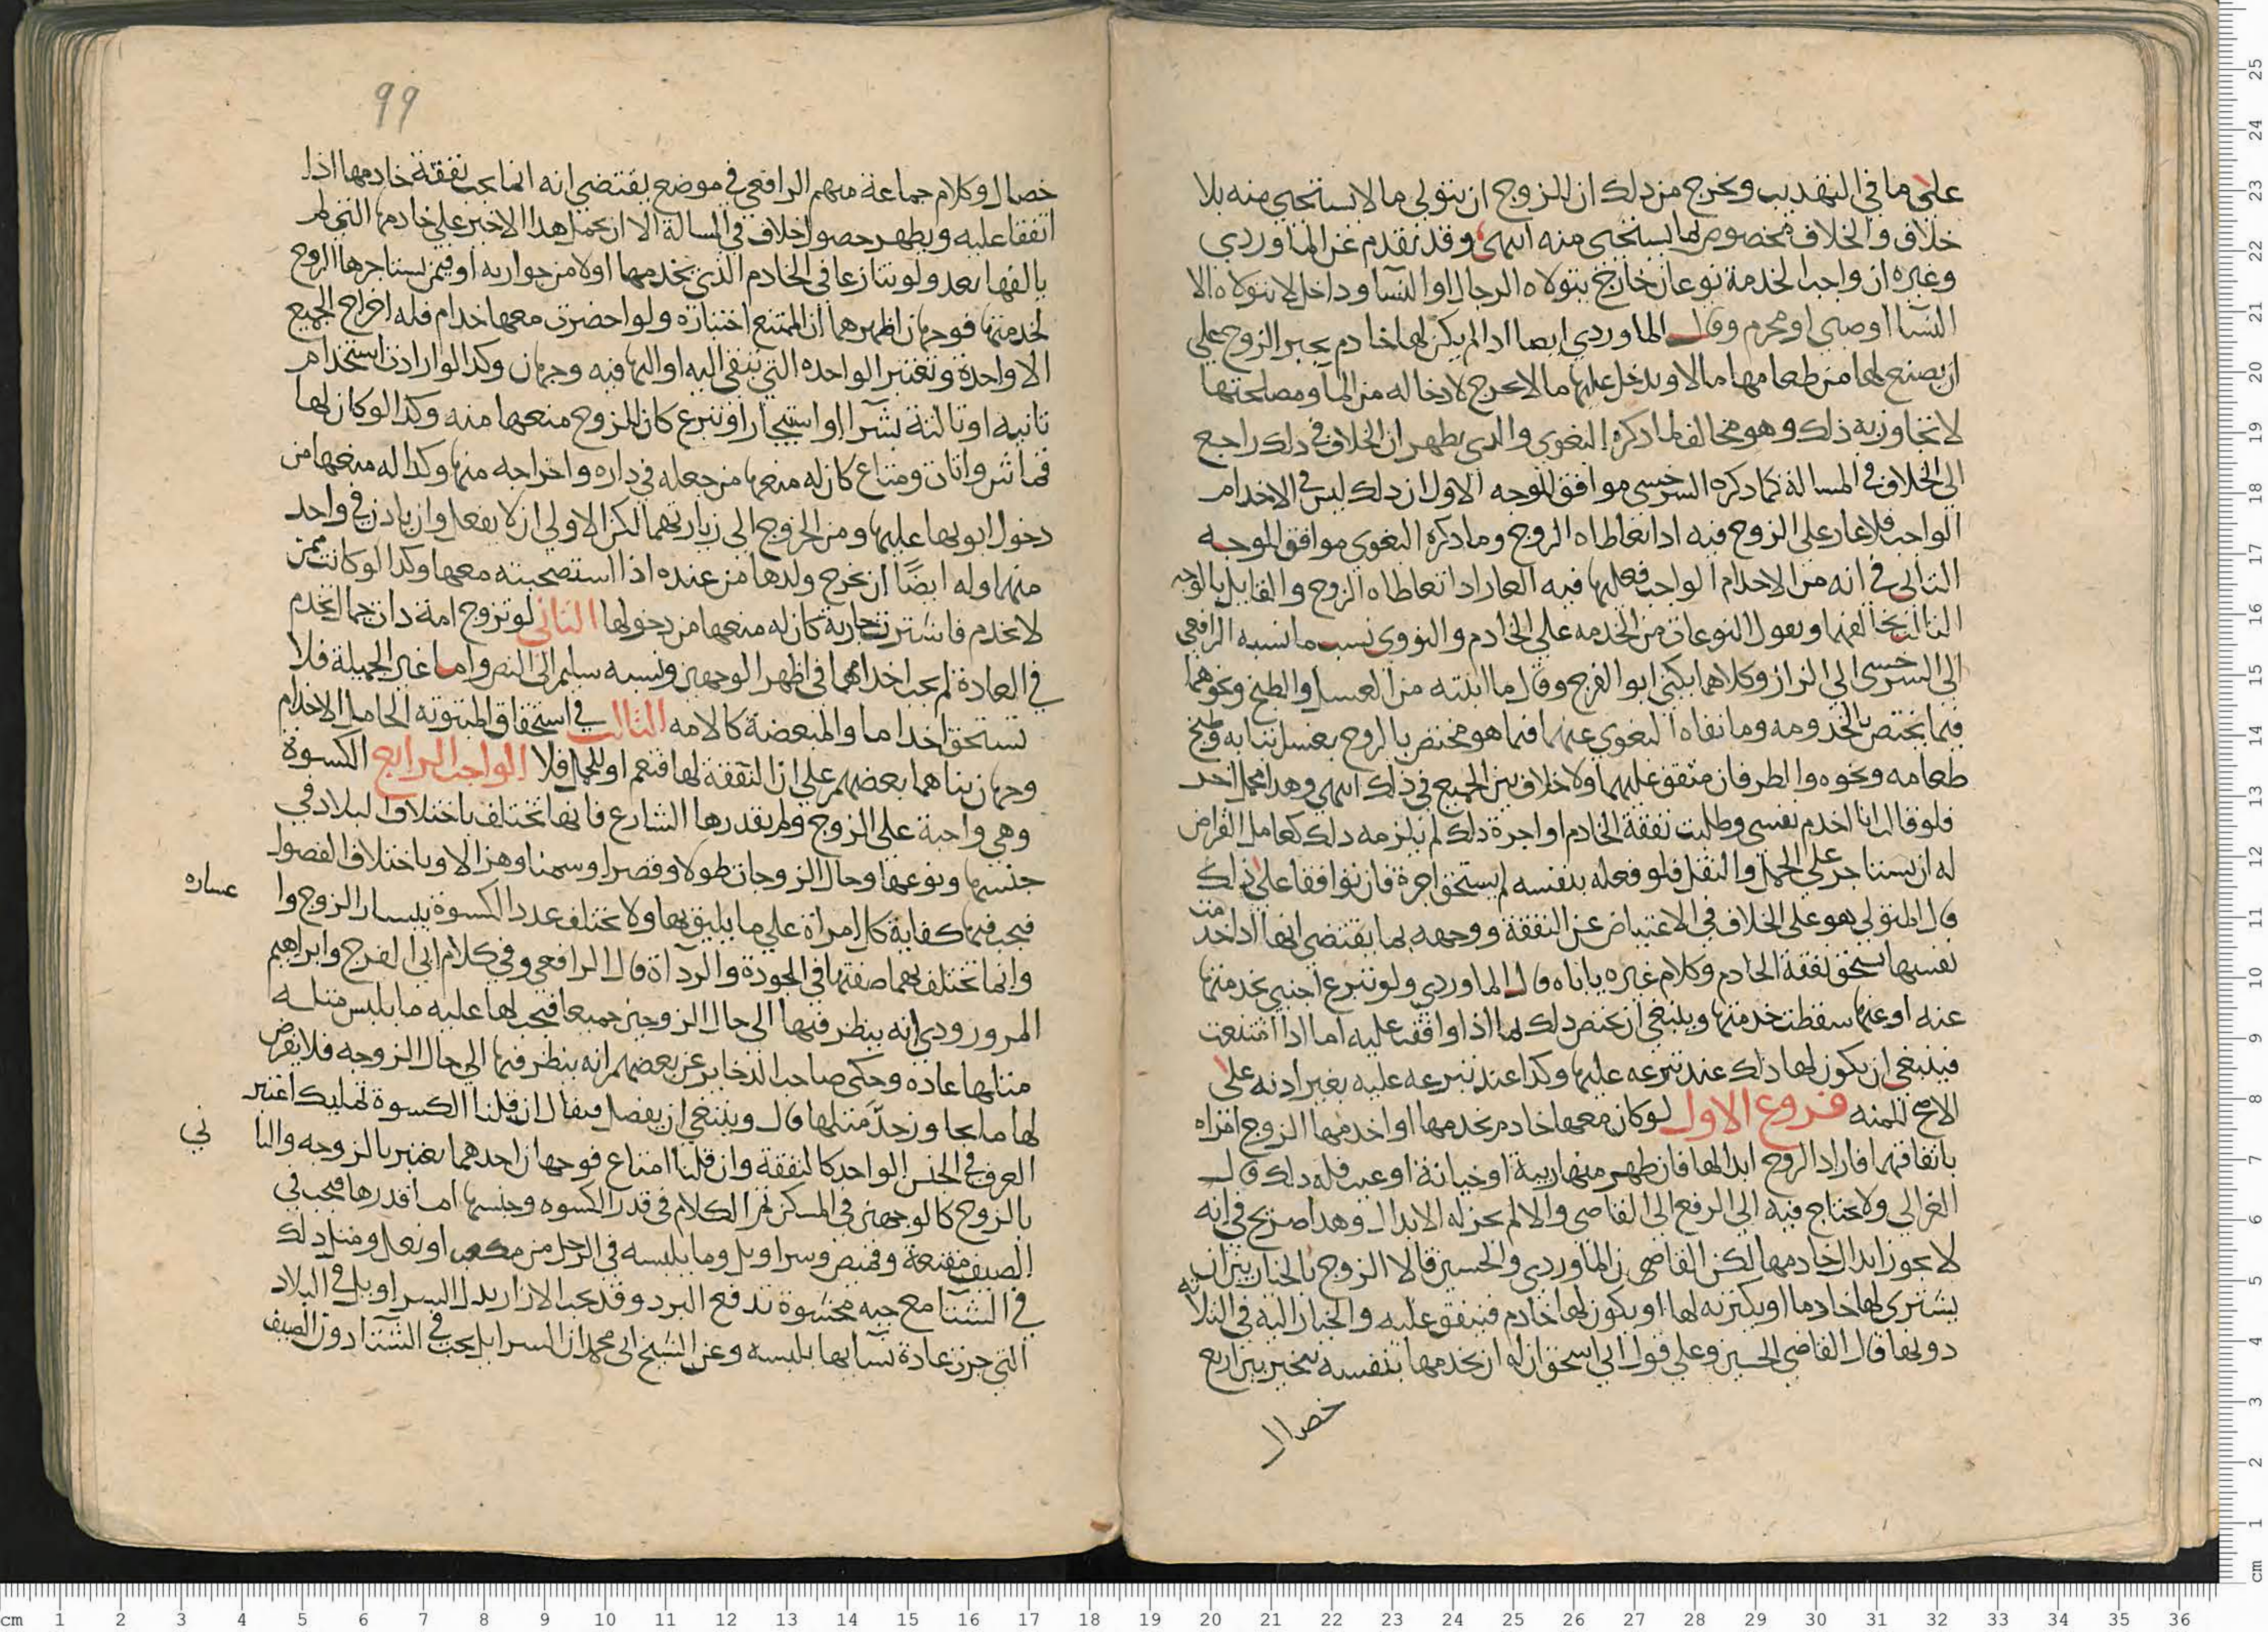 على ما في التهذيب ويخرج من ذلك ان للزوج ان يتولى ما لا يستحيي منه بلا
خلاف والخلاف مخصوص لما يستحيى منه انتهى وقد تقدم عن الماوردي
وغيره ان واجب الخدمة نوعان خارج يتولاه الرجال او النسا وداخل لا يتولاه الا
النسا او صبي او محرم وقال الماوردي ايضا اذا لم يكن لها خادم يجبر الزوج على
ان يصنع لها من طعامها مالا ويدخل عليها مالا يحرج لادخاله من الما ومصلحتها
لا يتجاوز به ذلك وهو مخالف لما ذكره البغوي والذي يظهر ان الخلاف في ذلك راجع
الى الخلاف في المسالة كما ذكره السرخسي موافق للوجه الاول ان ذلك ليس في الاخدام
الواجب فلا عار على الزوج فيه اذا تعاطاه الزوج وما ذكره البغوي موافق للوجه
الثاني في انه من الاخدام الواجب فعليها فيه العار اذا تعاطاه الزوج والقايل بالوجه
الثالث يخالفهما ويقول النوعان من الخدمة على الخادم والنووي نسب ما نسبه الرافعي
الى السرخسي الى الزاز وكلاهما يكنى ابو الفرج وقال ما اثبته من الغسل والطبخ ونحوهما
فيما يختص بالمخدومه وما نفاه البغوي عنهما فيما هو مختص بالزوج بغسل ثيابه وطبخ
طعامه ونحوه والطرفان متفق عليهما ولا خلاف بين الجميع في ذلك انتهى وهذا محمل اخر
فلو قالت انا اخدم نفسي وطلبت نفقة الخادم او اجرة ذلك لم يلزمه ذلك كعامل القراض
له ان يستاجر على الحمل والنقل فلو فعله بنفسه لم يستحق اجرة فان توافقا على ذلك
قال المتولي هو على الخلاف في الاعتياض عن النفقة ووجهه بما يقتضي انها اذا خدمت
نفسها تستحق نفقة الخادم وكلام غيره ياباه وقال الماوردي ولو تبرع اجنبي بخدمتها
عنه او عنها سقطت خدمتها وينبغي ان يختص ذلك لما اذا وافقت عليه اما اذا امتنعت
فينبغي ان يكون لها ذلك عند تبرعه عليها وكذا عند تبرعه عليه بغير اذنه على
الاصح للمنه فروع الاول لو كان معها خادم يخدمها او اخدمها الزوج امراه
باتفاقهما فاراد الزوج ابدالها فان ظهر منها ريبة او خيانة او عيب فله ذلك قال
الغزالي ولا يحتاج فيه الى الرفع الى القاضي والا لم يجز له الابدال وهذا صريح في انه
لا يجوز ابدال خادمها لكن القاضي ن الماوردي والحسين قالا الزوج بالخيار بين ان
يشتري لها خادما او يكتريه لها او يكون لها خادم فينفق عليه والخيار اليه في الثلاثه
دونها قال القاضي الحسين وعلى قول ابي اسحق ان له ان يخدمها بنفسه يتخير بين اربع
خصال
99
خصال وكلام جماعة منهم الرافعي في موضع يقتضي انه انما يجب نفقة خادمها اذا
اتفقا عليه ويظهر حصول خلاف في المسالة الا ان يحمل هذا الاخير على خادمها التي لم
يالفها بعد ولو تنازعا في الخادم الذي يخدمها اولا من جواريه او فيمن يستاجرها الزوج
لخدمتها فوجهان اظهرهما ان المتبع اختياره ولو احضرت معها خدام فله اخراج الجميع
الا واحدة وتعتبر الواحده التي تبقى اليه او اليها فيه وجهان وكذا لو ارادت استخدام
ثانيه او ثالثة بشرا او استيجار او تبرع كان للزوج منعها منه وكذا لو كان لها
قماش واثاث ومتاع كان له منعها من جعله في داره واخراجه منها وكذا له منعها من
دخول ابويها عليها ومن الخروج الى زيارتهما لكن الاولى ان لا يفعل وان ياذن في واحد
منهما وله ايضًا ان يخرج ولدها من عنده اذا استصحبته معها وكذا لو كانت ممن
لا تخدم فاشترت جارية كان له منعها من دخولها الثاني لو تزوج امة ذات جمال تخدم
في العادة لم يجب اخدامها في اظهر الوجهين ونسبه سليم الى النص واما غير الجميلة فلا
تستحق اخداما والمبعضة كالامه الثالث في استحقاق المبتوته الحامل الاخدام
وجهان بناهما بعضهم على ان النفقة لها فنعم او للحمل فلا الواجب الرابع الكسوة
وهي واجبة على الزوج ولم يقدرها الشارع فانها تختلف باختلاف البلاد في
جنسها ونوعها وحال الزوجات طولا وقصرا وسمنا وهزالا وباختلاف الفصول
فيجب فيها كفاية كل امراة على ما يليق بها ولا يختلف عدد الكسوة بيسار الزوج وا عساره
وانما تختلف بهما صفتها في الجودة والرداة قال الرافعي وفي كلام ابي الفرج وابراهيم
المروروذي انه ينظر فيها الى حال الزوجين جميعا فيجب لها عليه ما يلبس مثله
مثلها عاده وحكى صاحب الذخاير عن بعضهم انه ينظر فيها الى حال الزوجه فلا يفرض
لها ما يجاوز حدّ مثلها قال وينبغي ان يفصل فيقال ان قلنا الكسوة تمليك اعتبر
العرف في الجنس الواحد كالنفقة وان قلنا امتاع فوجهان احدهما يعتبر بالزوجه والثا ني
بالزوج كالوجهين في المسكن ثم الكلام في قدر الكسوه وجنسها اما قدرها فيجب في
الصيف مقنعة وقميص وسراويل وما يلبسه في الرجل من مكعب او نعل ومثل ذلك
في الشتا مع جبه محشوة تدفع البرد وقد يجب الازار بدل السراويل في البلاد
التي جرت عادة نسايها بلبسه وعن الشيخ ابي محمد ان السراويل يجب في الشتا دون الصيف